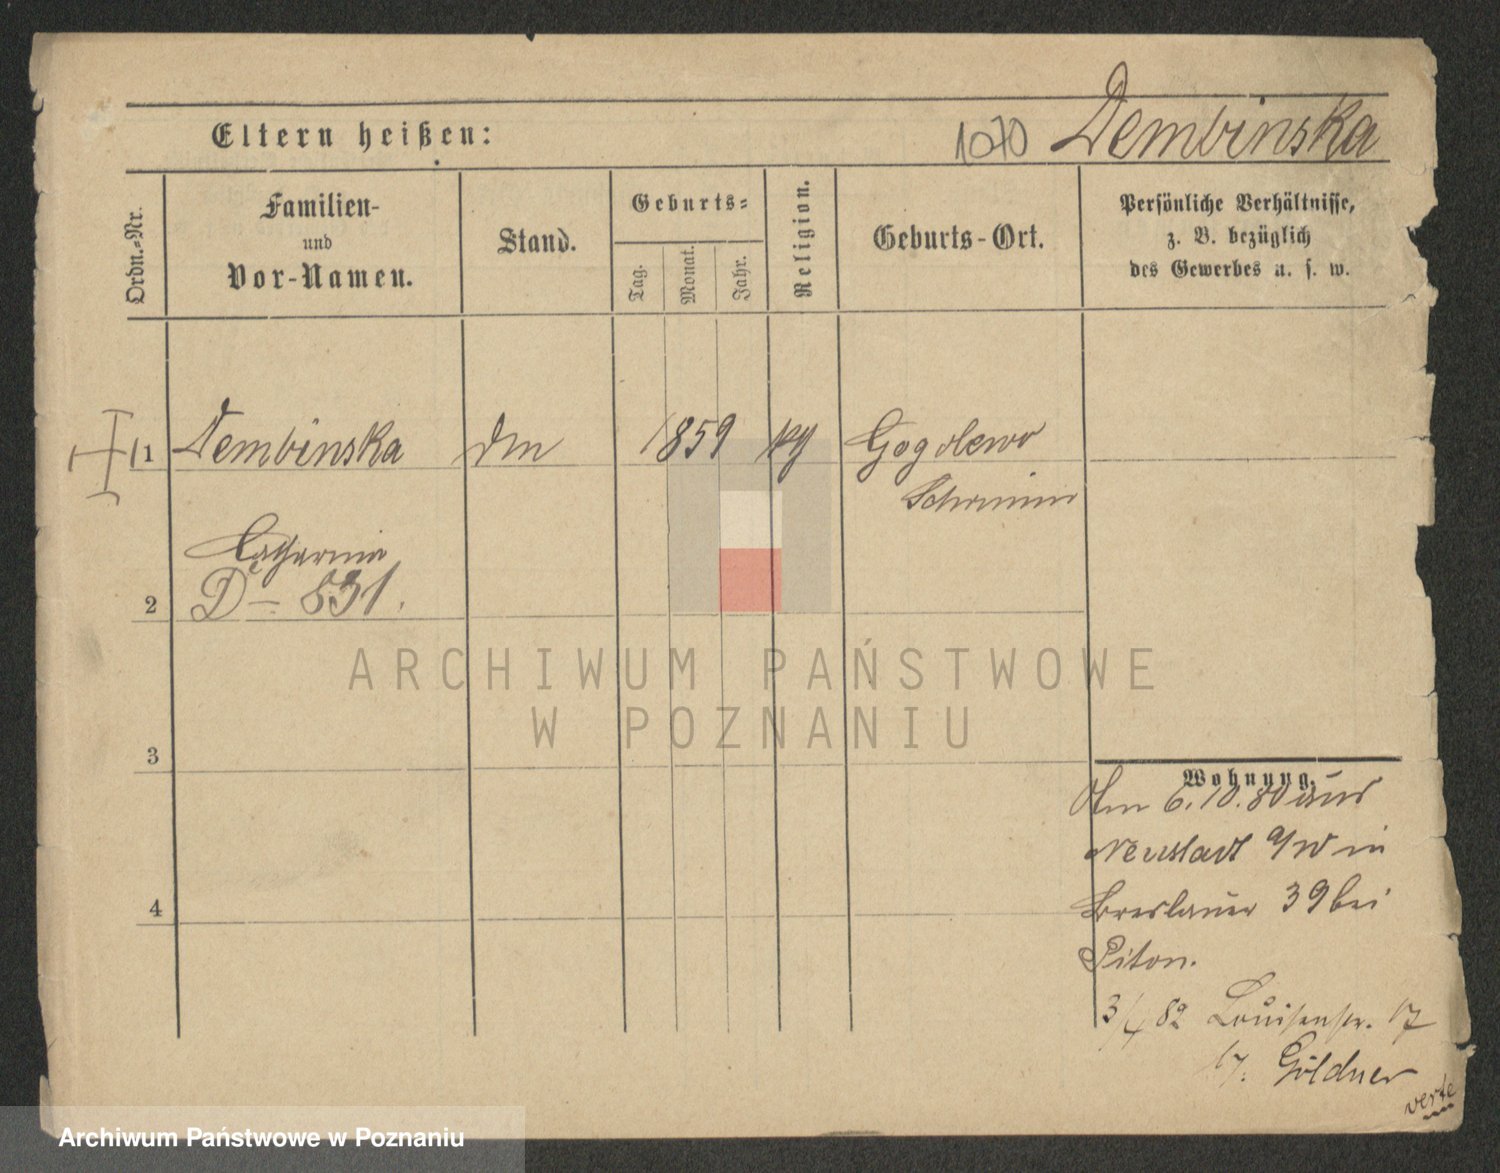 Eltern heißen: 1070 Dembinska
Ordn.-Nr.
Familien-
und
Vor-Namen.
Stand.
Geburts-
Tag.
Monat.
Jahr.
Religion.
Geburts-Ort.
Persönliche Verhältnisse,
z. B. bezüglich
des Gewerbes u. s. w.
1 Dembinska 1859 Gogolewo
Catharina
D - 831.
2
3
4
ARCHIWUM PAŃSTWOWE
W POZNANIU
Wohnung.
6. 10. 80 aus
Neustadt a/W in
Breslauer 39 bei
Piton.
3/4 82 Louisenstr. 17
Göldner
verte
Archiwum Państwowe w Poznaniu